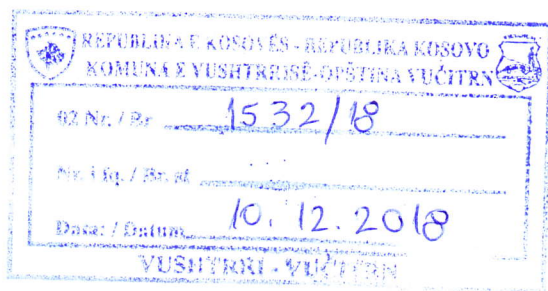 REPUBLIKA E KOSOVËS - REPUBLIKA KOSOVO
KOMUNA E VUSHTRRISË-OPŠTINA VUČITRN
02 Nr. / Br 1532/18
Nr. i fq. / Br. st.
Data: / Datum 10. 12. 2018
VUSHTRRI - VUČITRN